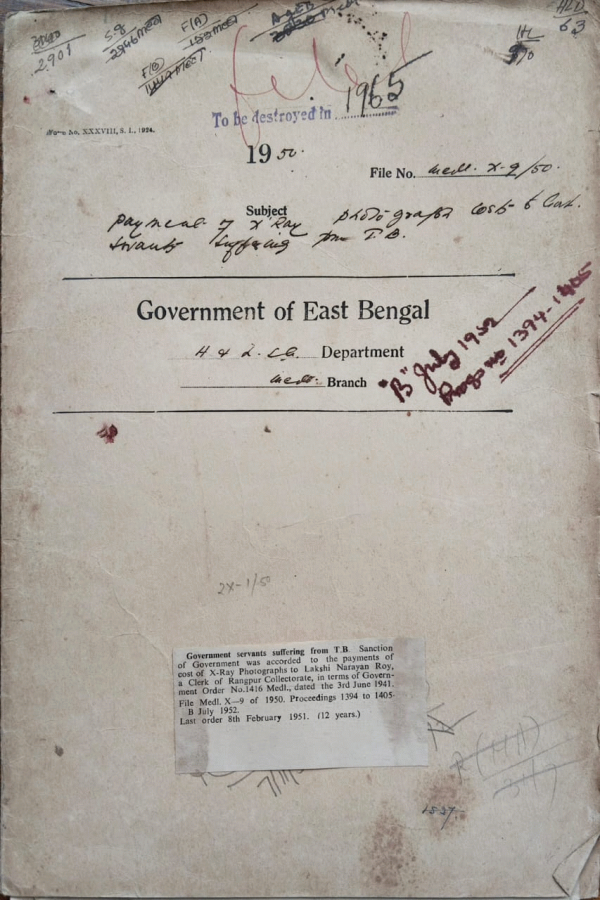 HLD
63
2901
S.G
F(A)
F(B)
To be destroyed in 1965
Form No. XXXVIII, S. I., 1924.
1950.
File No. Medl. X-9/50.
Subject
payment of X Ray photographs cost to Govt.
servants suffering from T.B.
Government of East Bengal
Department
Medl. Branch
"B" July 1952
Progs no 1394-1405
2X-1/50
Government servants suffering from T.B. Sanction
of Government was accorded to the payments of
cost of X-Ray Photographs to Lakshi Narayan Roy,
a Clerk of Rangpur Collectorate, in terms of Govern-
ment Order No.1416 Medl., dated the 3rd June 1941.
File Medl. X—9 of 1950. Proceedings 1394 to 1405-
B July 1952.
Last order 8th February 1951. (12 years.)